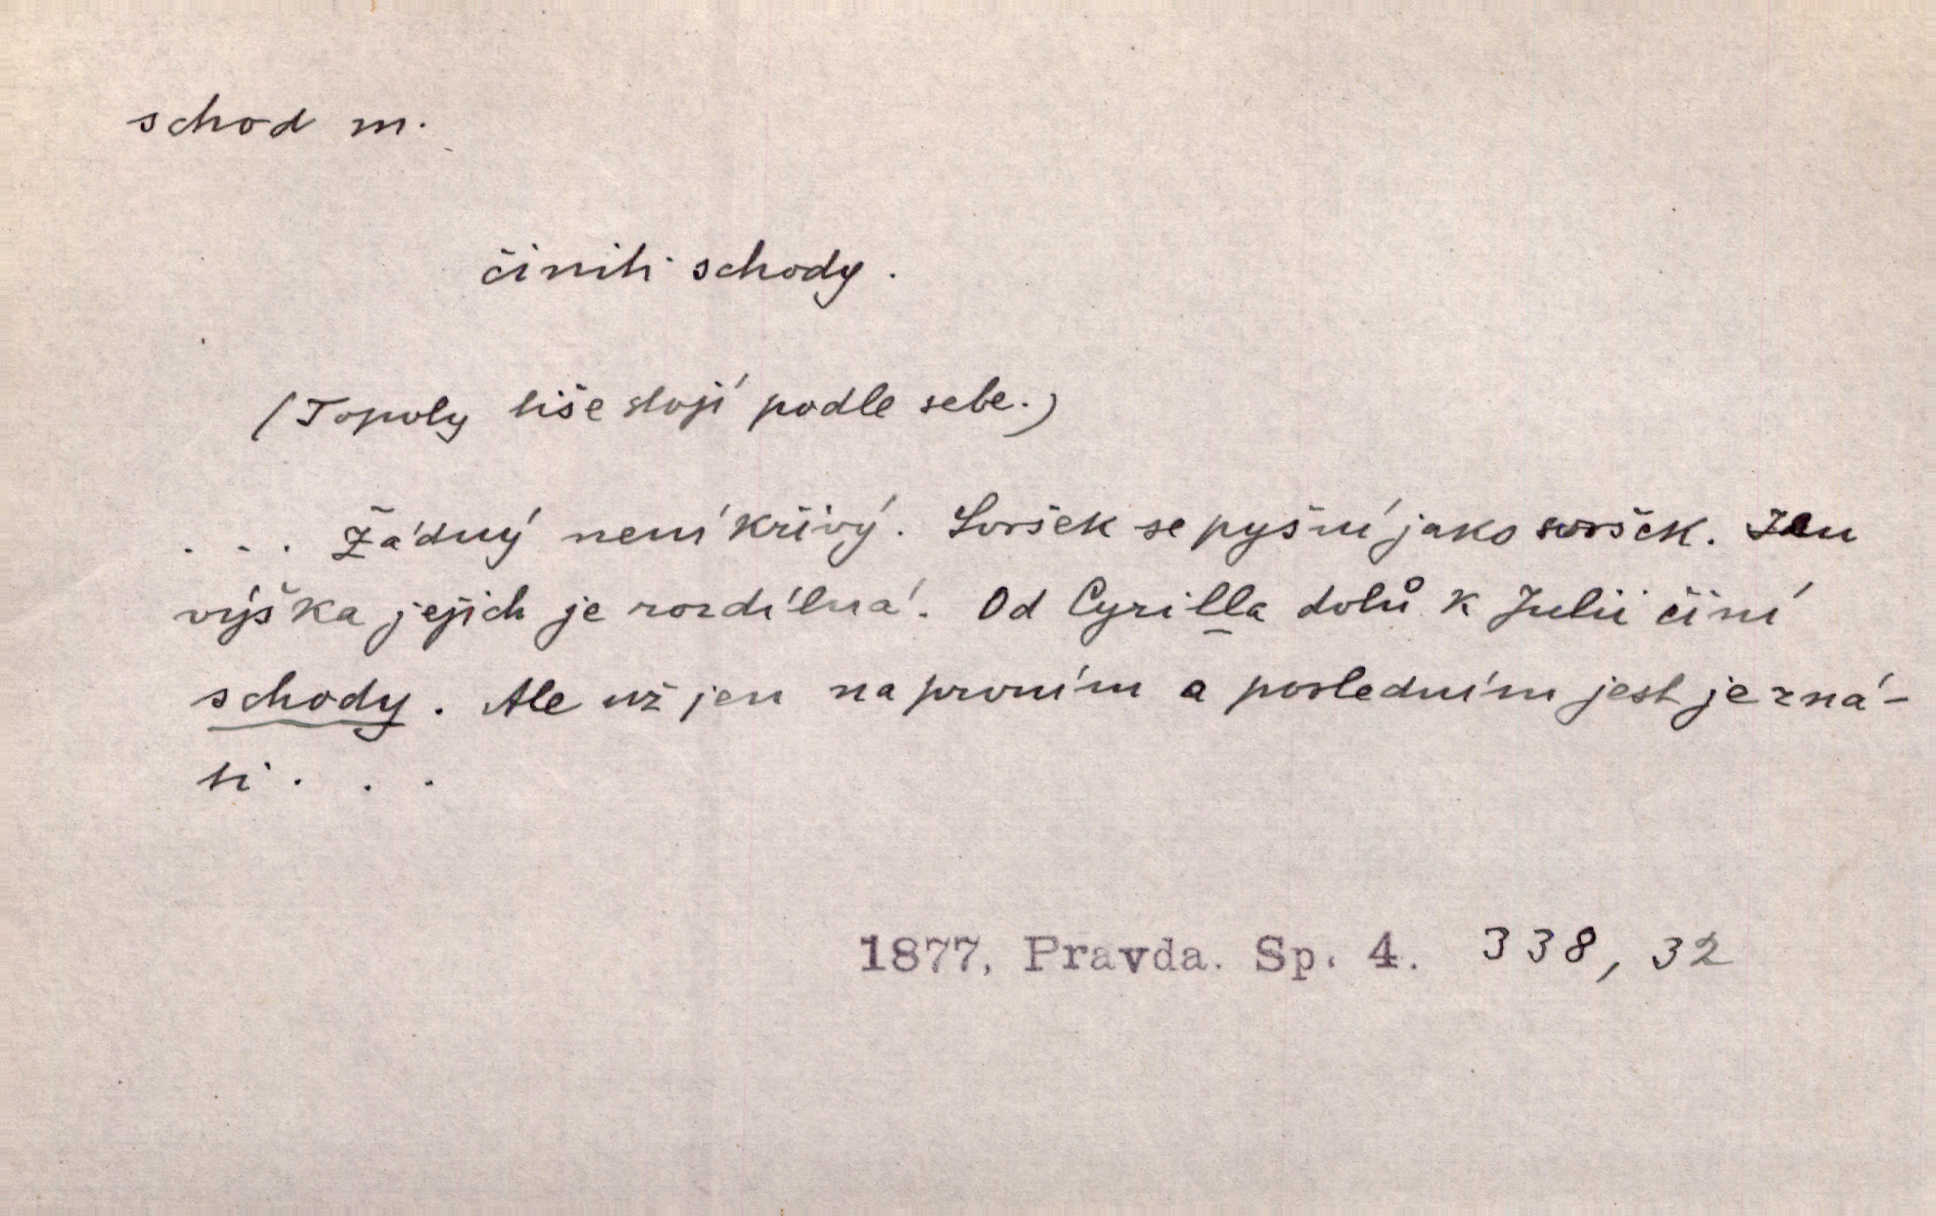 schod m.
činiti schody.
(Topoly tiše stojí podle sebe.)
... Žádný není křivý. Svršek se pyšní jako svršek. Jen
výška jejich je rozdílná. Od Cyrilla dolů k Julii činí
schody. Ale už jen na prvním a posledním jest je zná-
ti...
1877, Pravda. Sp. 4. 338, 32